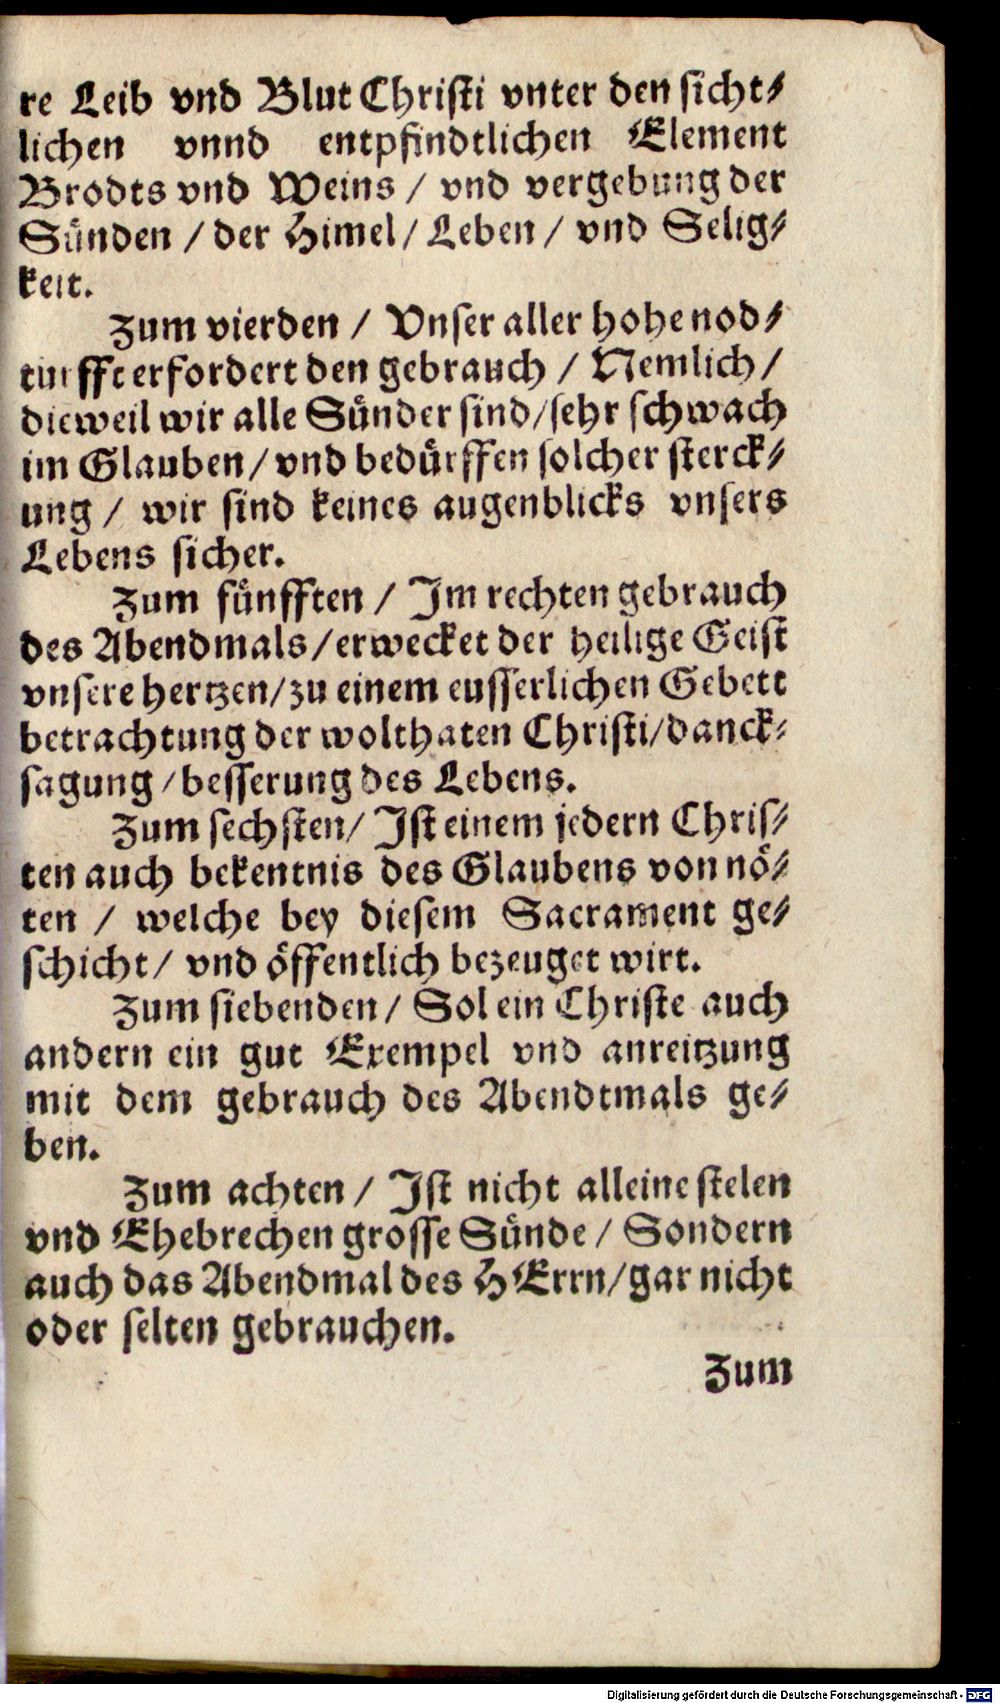 re Leib vnd Blut Christi vnter den sicht⸗
lichen vnnd entpfindtlichen Element
Brodts vnd Weins / vnd vergebung der
Sünden / der Himel / Leben / vnd Selig⸗
keit.
Zum vierden / Vnser aller hohe nod⸗
turfft erfordert den gebrauch / Nemlich /
dieweil wir alle Sünder sind / sehr schwach
im Glauben / vnd bedürffen solcher sterck⸗
ung / wir sind keines augenblicks vnsers
Lebens sicher.
Zum fünfften / Im rechten gebrauch
des Abendmals / erwecket der heilige Geist
vnsere hertzen / zu einem eusserlichen Gebett
betrachtung der wolthaten Christi / danck⸗
sagung / besserung des Lebens.
Zum sechsten / Ist einem jedern Chris⸗
ten auch bekentnis des Glaubens von nö⸗
ten / welche bey diesem Sacrament ge⸗
schicht / vnd öffentlich bezeuget wirt.
Zum siebenden / Sol ein Christe auch
andern ein gut Exempel vnd anreitzung
mit dem gebrauch des Abendtmals ge⸗
ben.
Zum achten / Ist nicht alleine stelen
vnd Ehebrechen grosse Sünde / Sondern
auch das Abendmal des HErrn / gar nicht
oder selten gebrauchen.
Zum
Digitalisierung gefördert durch die Deutsche Forschungsgemeinschaft - DFG